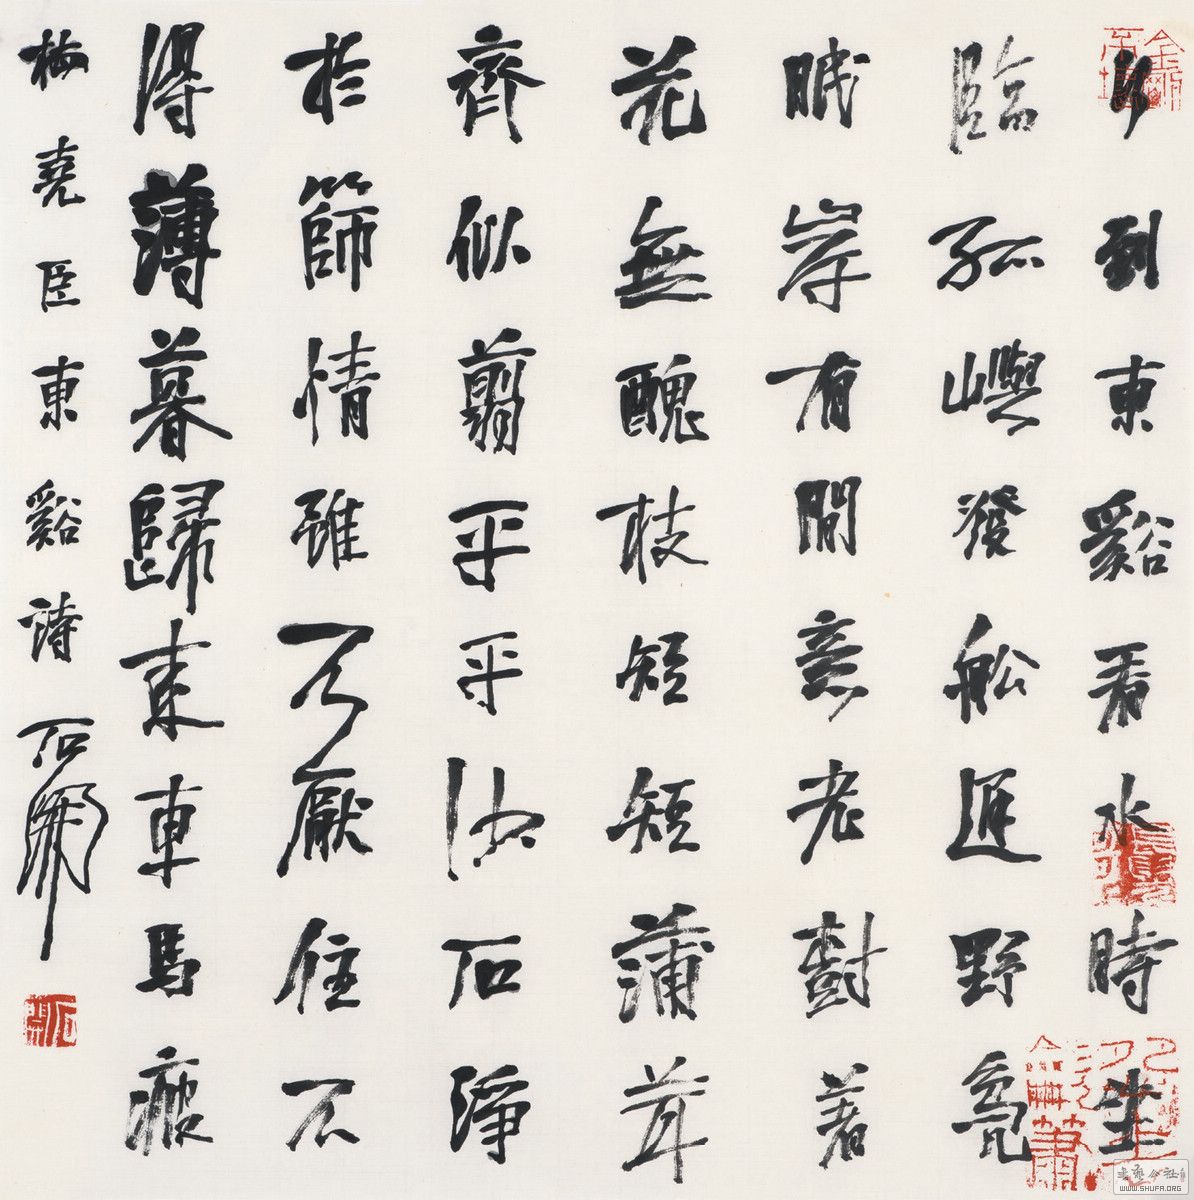 行到東谿看水時坐
臨孤嶼發舩遲野鳧
眠岸有間意老樹著
花無醜枝短短蒲茸
齊似翦平平沙石淨
於篩情雖不厭住不
得薄暮歸來車馬疲
梅堯臣東谿詩 石開
WWW.SHUFA.ORG